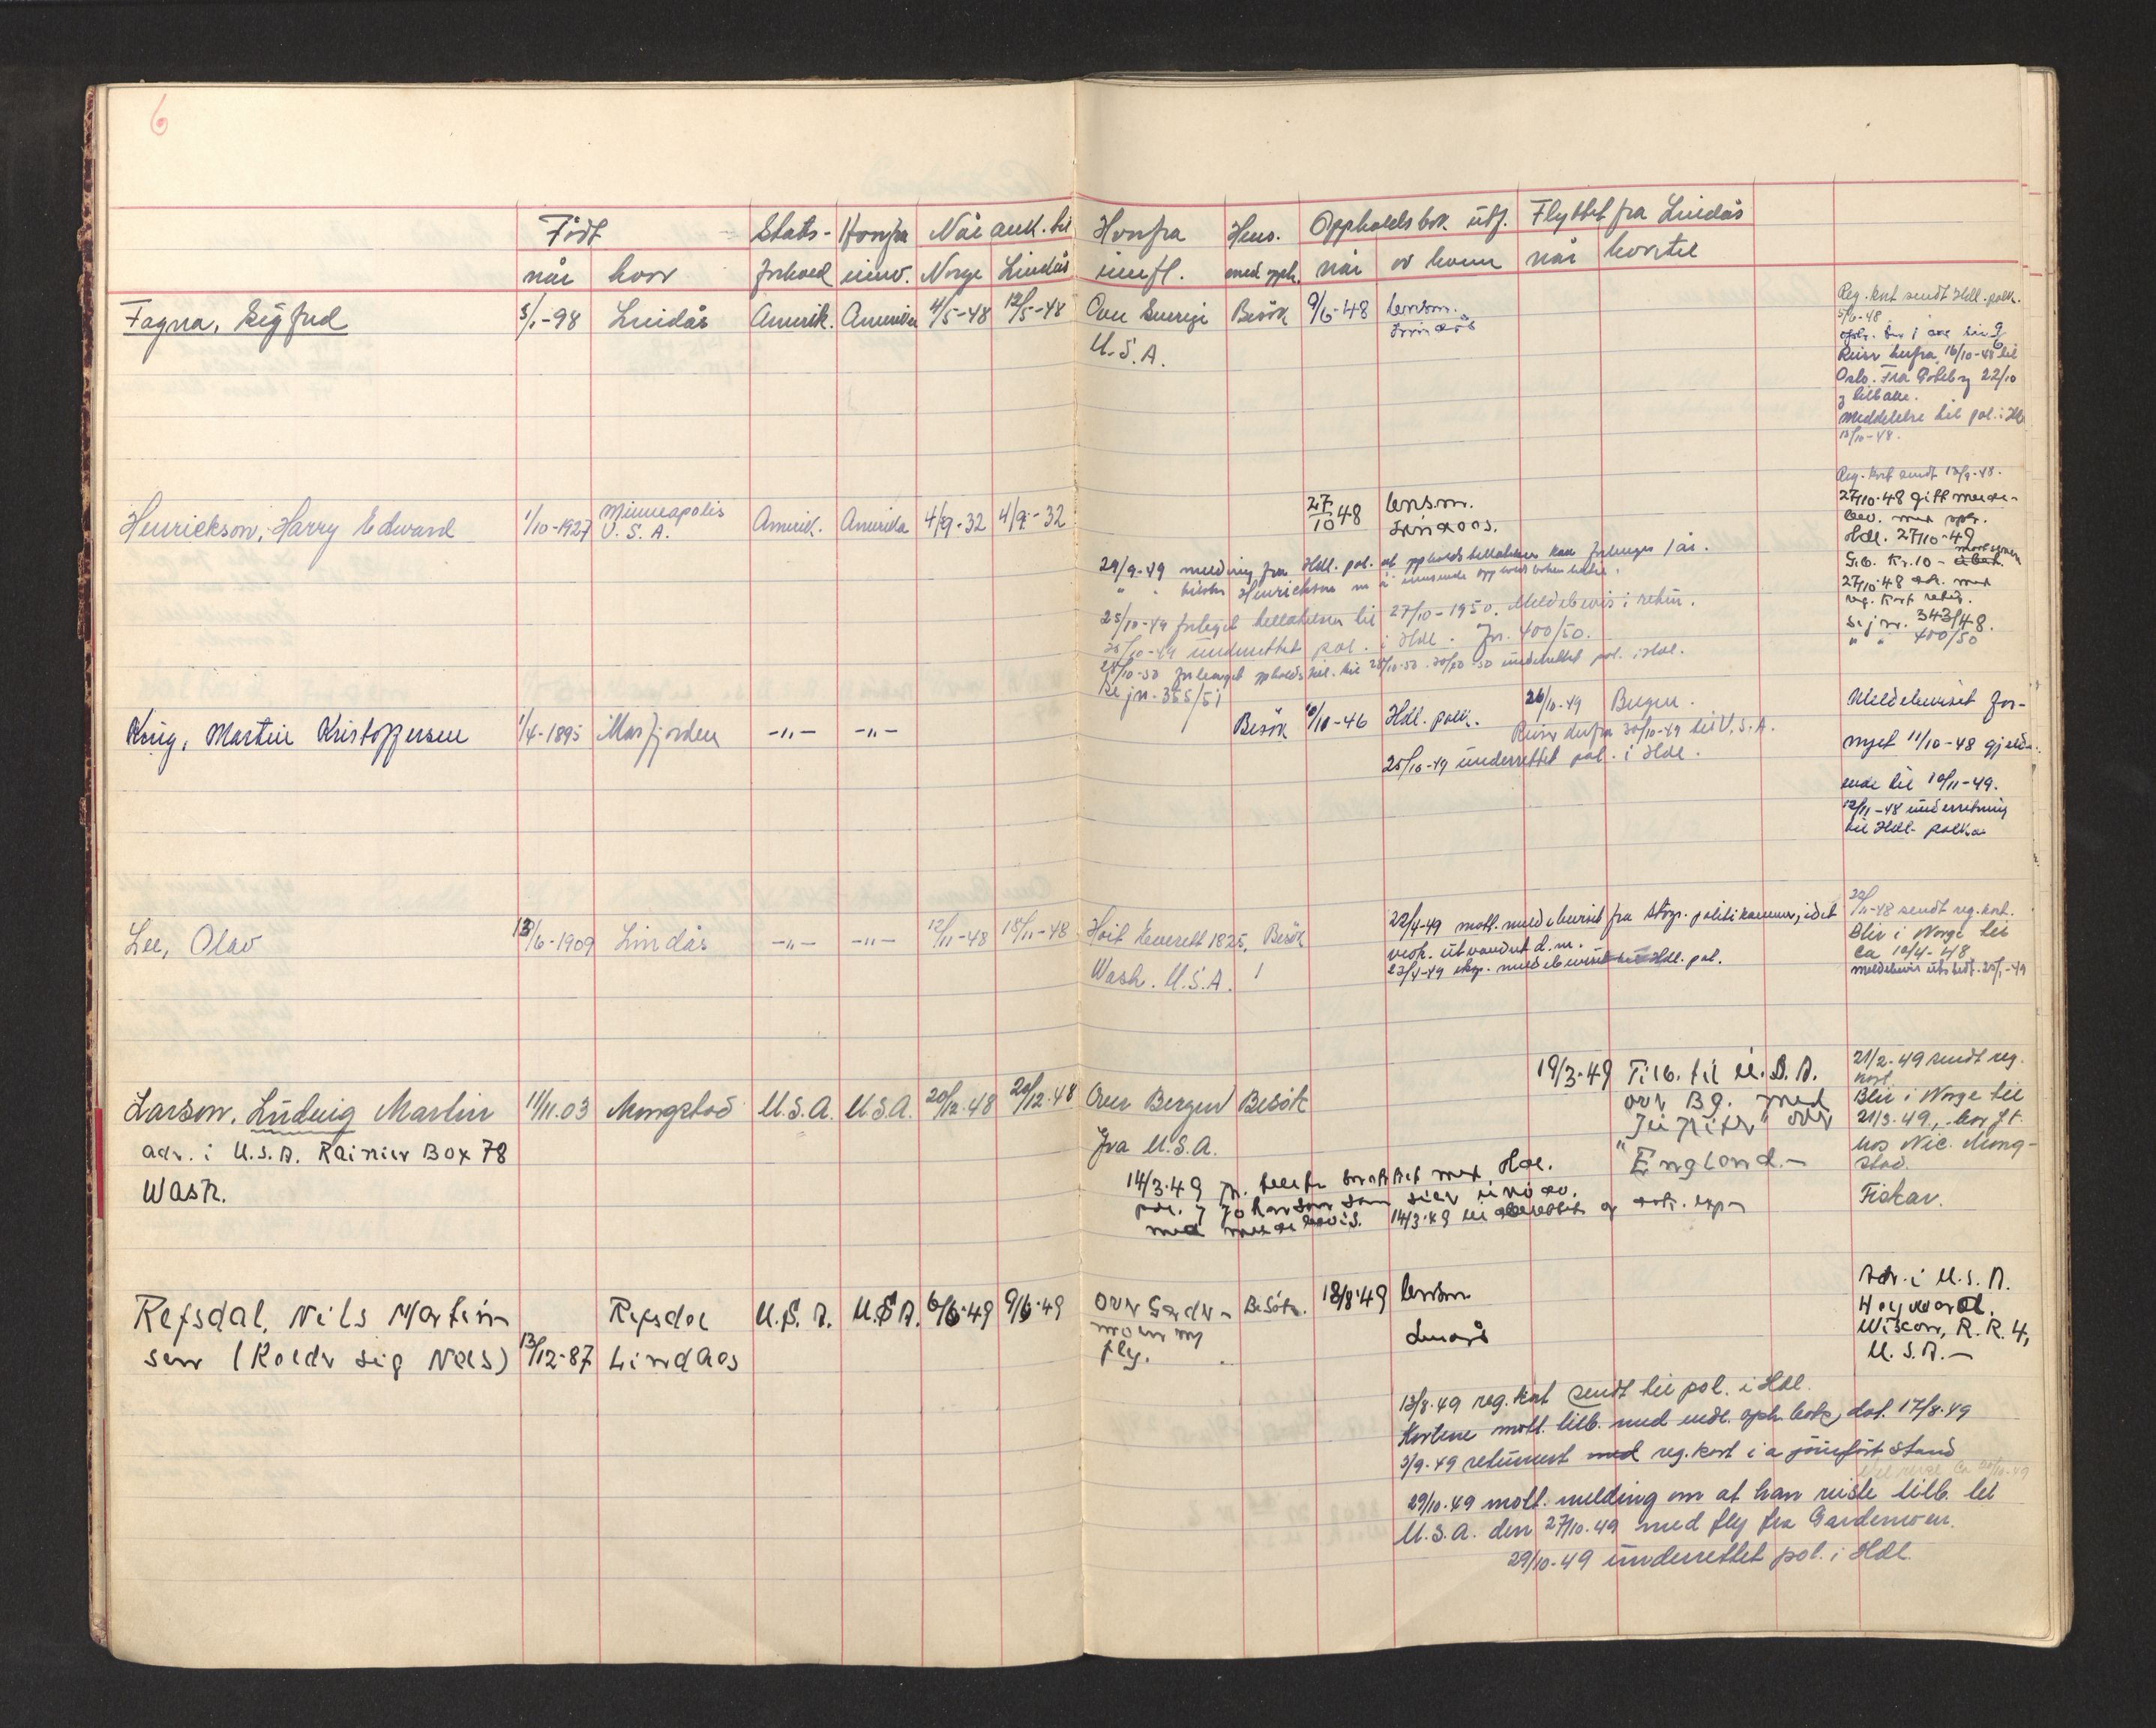 6
Født Stats- Hvorfra Når ank. til Hvorfra Hens. Oppholdsbok utf. Flyttet fra Lindås
når hvor forhold innv. Norge Lindås innfl. med opph. når av hvem når hvortil
Fagna, Sigfrid 5/1-98 Lindås Amerik. Amerika 4/5-48 12/5-48 Over Sverige Besøk 9/6-48 lensm. Lindås
U.S.A.
Reg. kort sendt Hdl. polk.
5/6-48
Reiser herfra 16/10-48 til
Oslo. Fra Göteborg 22/10
tilbake.
Meddelelse til pol. i Hdl
13/10-48.
Henrickson, Harry Edward 1/10-1927 Minneapolis U.S.A. Amerik. Amerika 4/9-32 4/9-32 27/10 48 lensm. Lindaas.
Reg. kort sendt 13/9-48.
27/10-48 gitt melde-
bev. med oph.
Hdl. 27/10-49
Geb. Kr. 10 -
27/10-48
reg. kort
S. jnr. 343/48.
" " 400/50
29/9-49 melding fra Hdl. pol. at oppholdstillatelsen kan forlenges 1 år.
" " Henrickson m å innsende oppholdsboken
25/10-49 forleget tillatelsen til 27/10-1950. Meldebevis i retur.
25/10-49 underrettet pol. i Hdl. Jr. 400/50.
28/10-50 forlenget opholds til. til 28/10-50. 30/10-50 underrettet pol. i Hdl.
Se jn. 355/51
King, Martin Kristoffersen 1/4-1895 Masfjorden -"- -"- Besøk 10/10-46 Hdl. polk. 26/10-49 Bergen.
Reiser derfra 30/10-49 til U.S.A.
25/10-49 underrettet pol. i Hdl.
Meldebeviset for-
nyet 11/10-48 gjeld-
ende til 10/11-49.
12/11-48 underretning
til Hdl. polk.
Lee, Olav 13/6-1909 Lindås -"- -"- 12/11-48 18/11-48 Hoit Everett 1825, Besøk
Wash. U.S.A.
22/4-49 mott. meldebeviset fra Stvgr. politikammer, idet
vedk. utvandret d.m.
23/4-49 eksp. meldebeviset til Hdl. pol.
20/11-48 sendt reg. kort.
Blir i Norge til
ca 10/4-48
meldebevis utstedt. 25/1-49
Larson, Ludvig Martin 11/11.03 Mongstad U.S.A. U.S.A. 20/12-48 20/12-48 Over Bergen Besøk 19/3-49 Tilb. til U.S.A.
adr. i U.S.A. Rainier Box 78
Wash.
fra U.S.A.
over Bg. med
"Jupiter" over
England.-
21/2-49 sendt reg.
kort.
Blir i Norge til
21/3-49, bor f.t.
hos Nic. Mong-
stad.
Fiskar.
14/3-49 pr. telefon med Hdl.
pol.
med meldebevis. 14/3-49
Refsdal, Nils Martin- Refsdal U.S.A. U.S.A. 6/6-49 9/6-49 Over Garder- Besøk. 13/8-49 lensm
sen (Kaldr sig Nels) 13/12-87 Lindaas moen m fly. Lindås
Adr. i U.S.A.
Hayward.
Wiscon, R.R. 4,
U.S.A.-
13/8-49 reg. kort sendt til pol. i Hdl.
Kortene mott. tilb. med vedl. oph. bok, dat. 17/8-49
3/9-49 returnert med reg. kort i a jourført stand
29/10-49 mott. melding om at han reiste tilb. til
U.S.A. den 27/10-49 med fly fra Gardemoen.
29/10-49 underrettet pol. i Hdl.